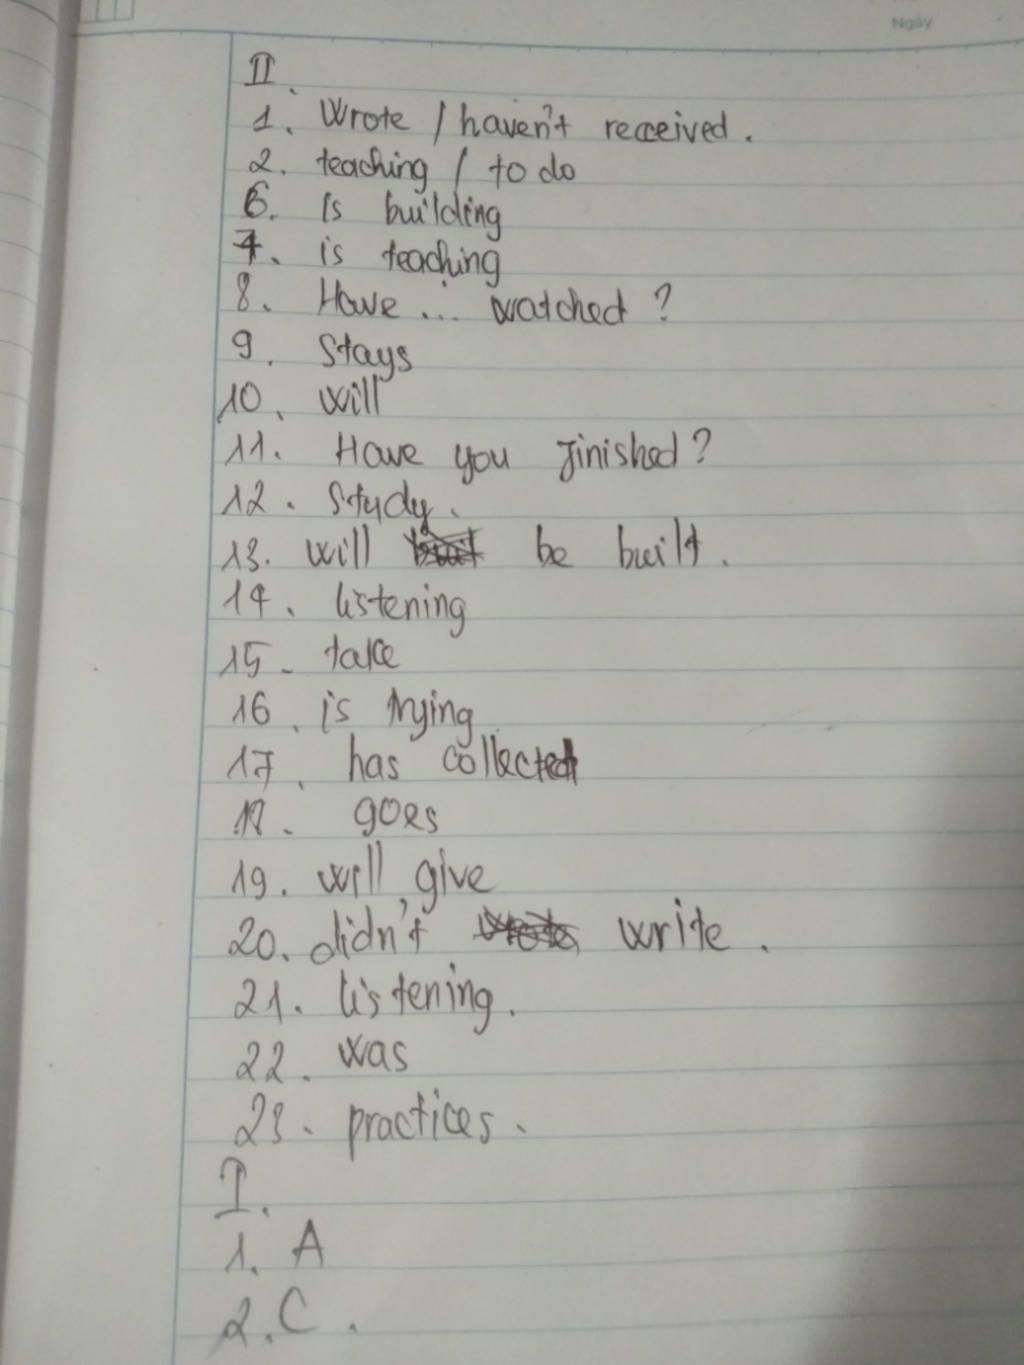 Ngày
II.
1. Wrote / haven't received.
2. teaching / to do
6. Is building
7. is teaching
8. Have ... watched?
9. Stays
10. will
11. Have you finished?
12. Study.
13. will be built.
14. listening
15. take
16. is trying
17. has collected
18. goes
19. will give
20. didn't write.
21. listening.
22. was
23. practices.
I.
1. A
2. C.